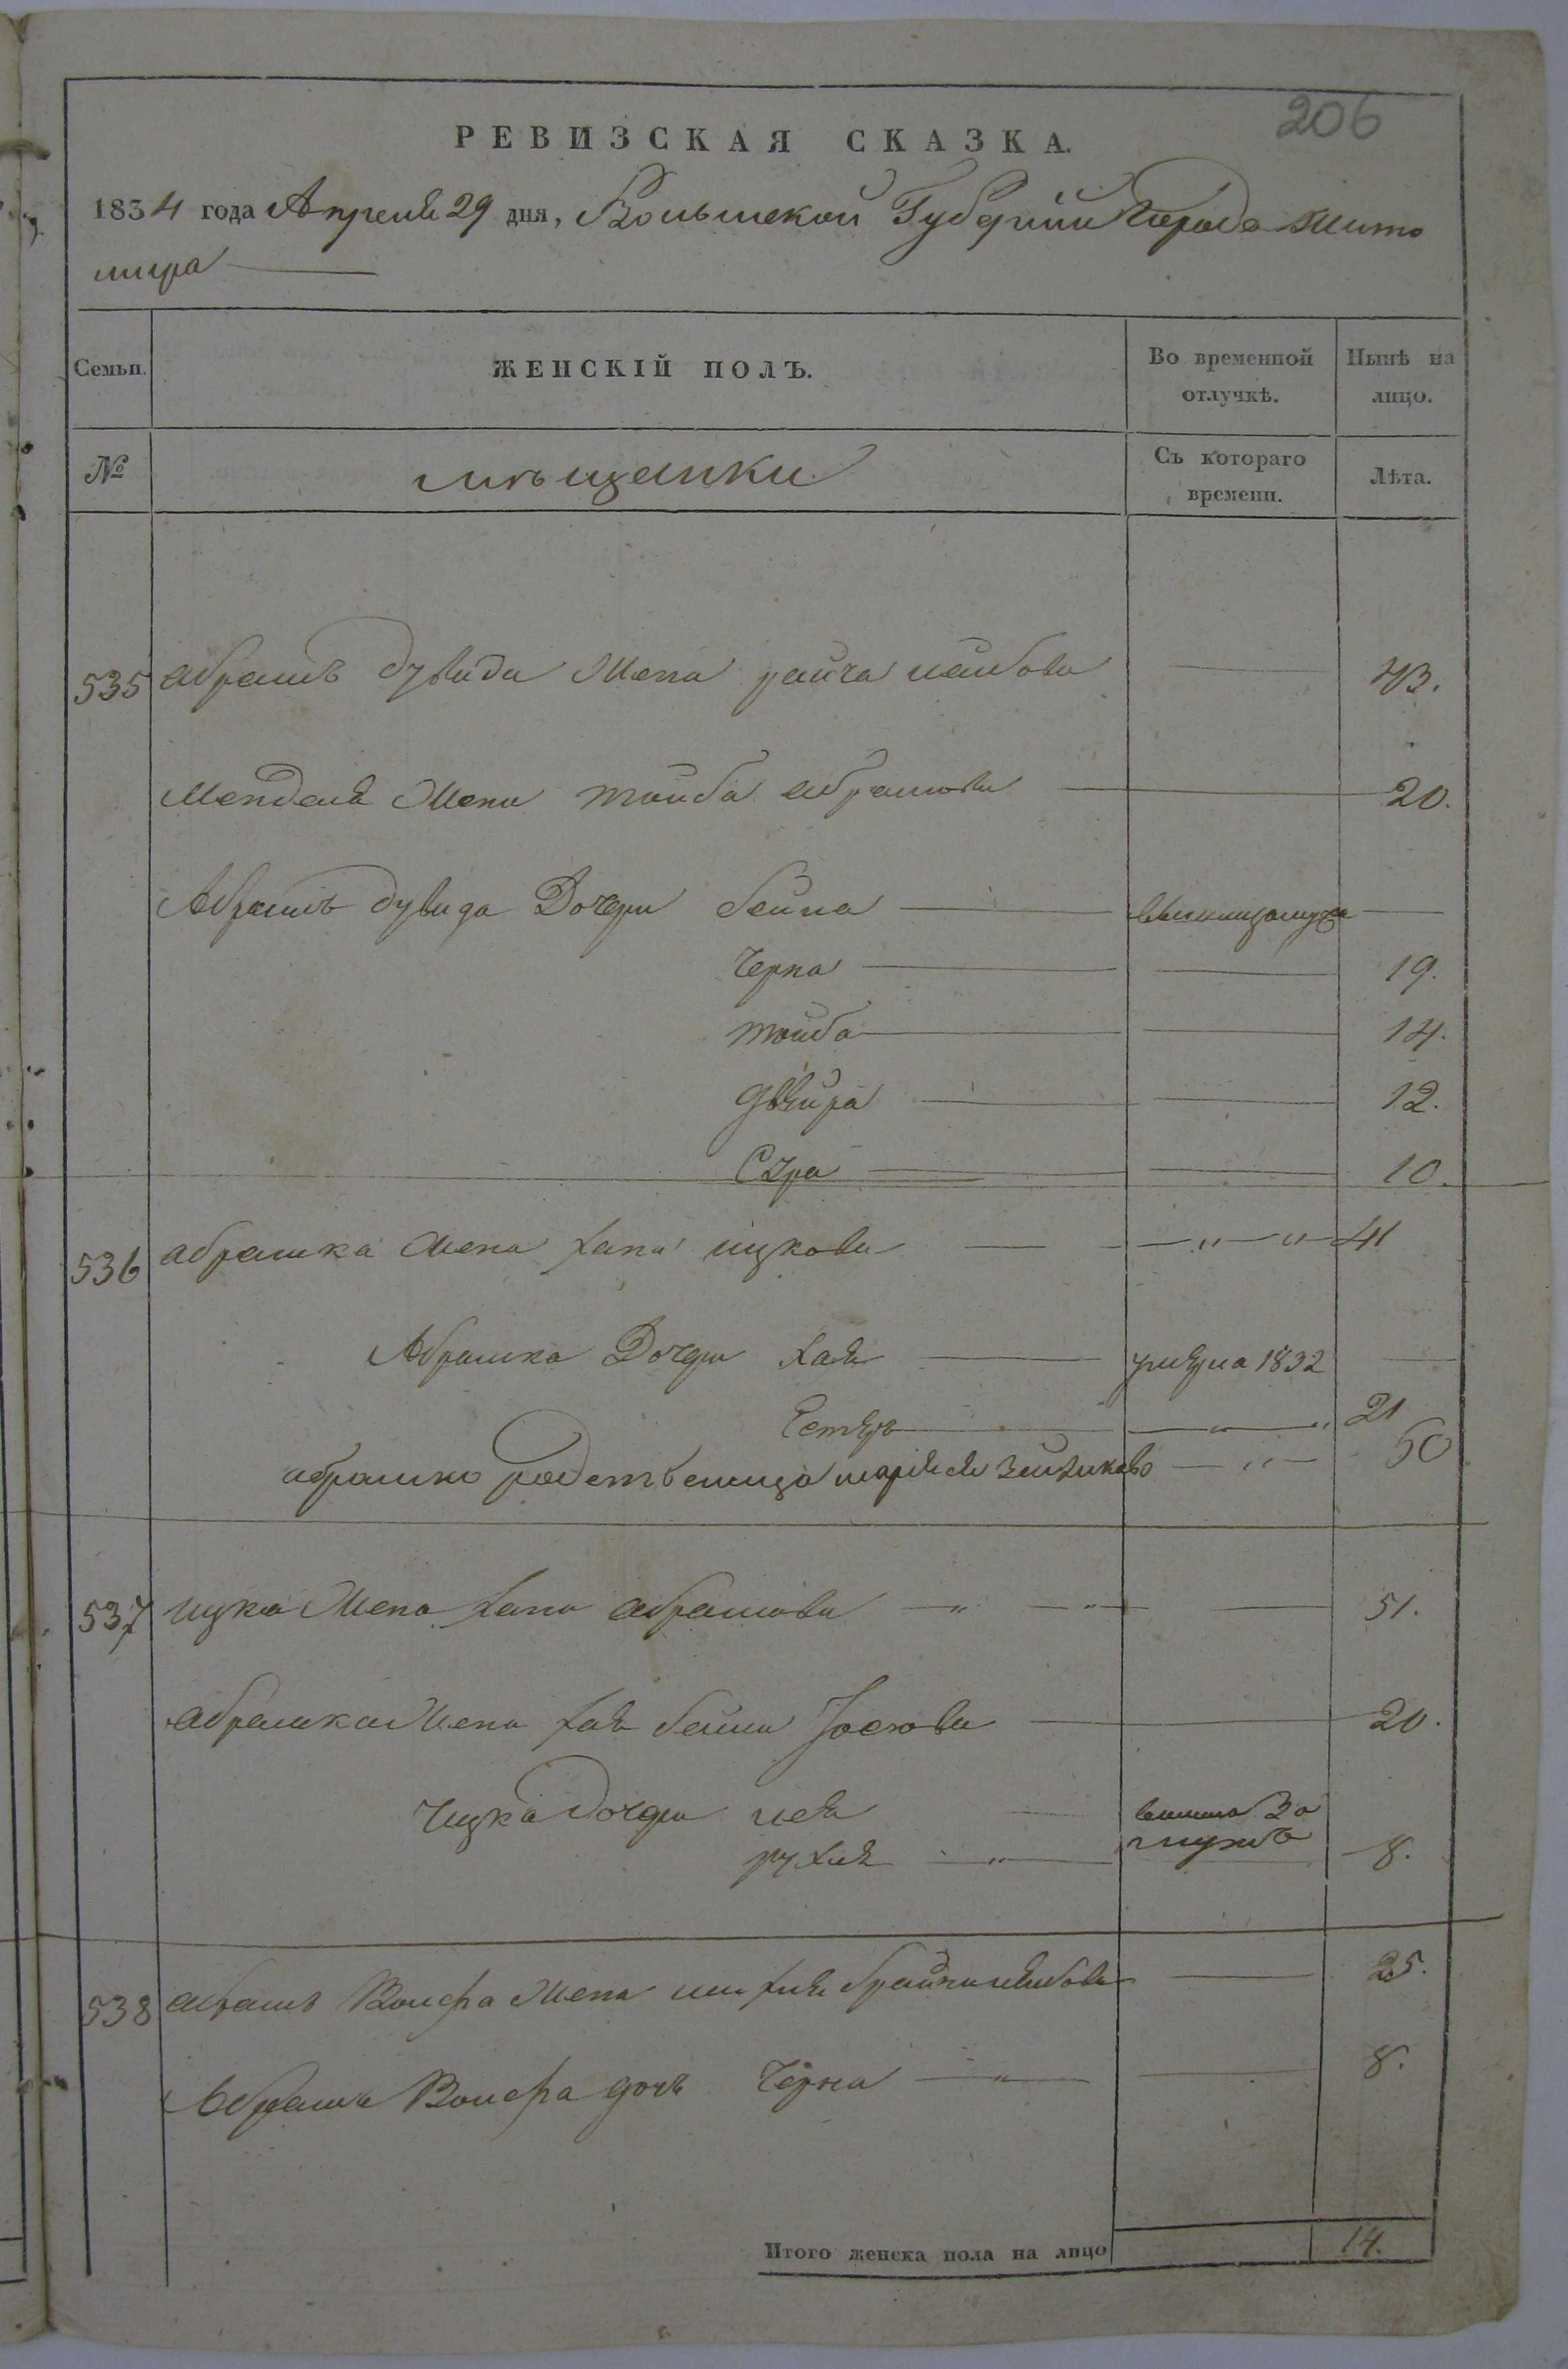 206
РЕВИЗСКАЯ СКАЗКА.
1834 года Апреля 29 дня, Волынской Губернии Города Жито
мира
Семьи. ЖЕНСКІЙ ПОЛЪ. Во временной отлучкѣ. Нынѣ на лицо.
№ мѣщанки Съ котораго времени. Лѣта.
535 абрамъ дувида жена райча лейбова 43.
Менделя жена тойба абрамова 20.
Абрамъ дувида Дочери бейла вышлизамужъ
Черна 19.
тойба 14.
двейра 12.
Сура 10.
536 абрашка жена хана ицкова 41
Абрашка Дочери хая умерла 1832
Естеръ 21
абрашка родственица 50
537 ицка жена хана абрамова 51.
абрашка жена хая бейла Йоскова 20.
Ицка дочери лея вышла За
мужъ
рухля 8.
538 абрамъ Волфа жена брайна лейбова 25.
Абрамъ Волфа дочь Черна 8.
Итого женска пола на лицо 14.